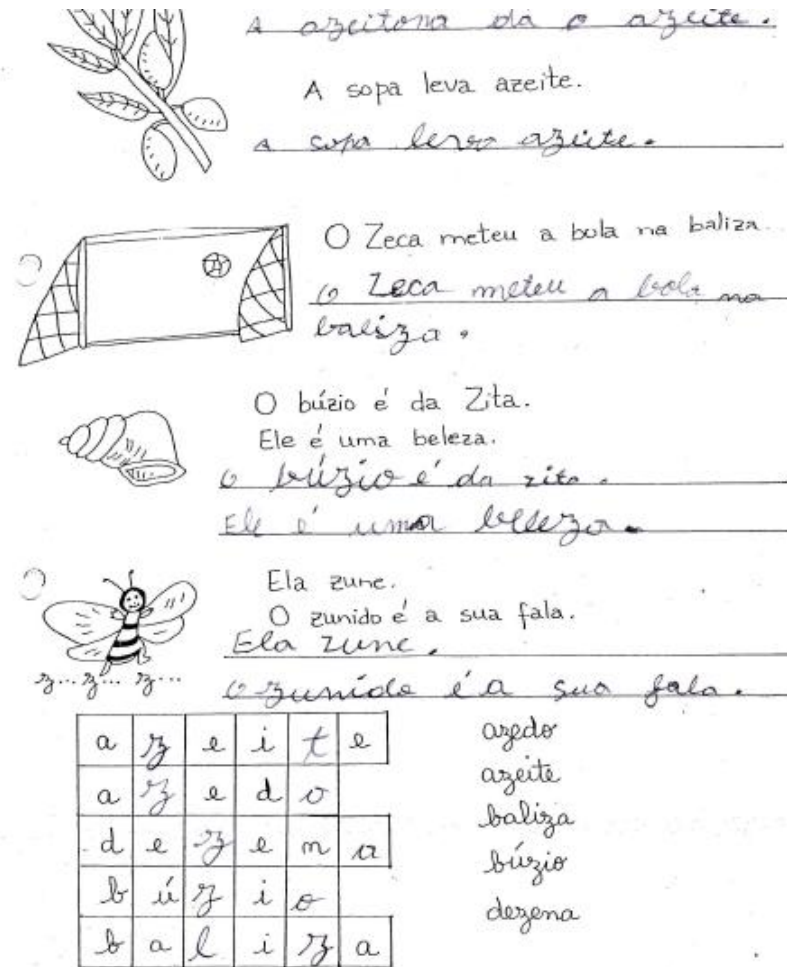 A azeitona dá o azeite.
A sopa leva azeite.
A sopa leva azeite.
O Zeca meteu a bola na baliza
O Zeca meteu a bola na
baliza.
O búzio é da Zita.
Ele é uma beleza.
O búzio é da zita.
Ele é uma beleza.
Ela zune.
O zunido é a sua fala.
Ela zune.
O zunido é a sua fala.
z... z... z...
a z e i t e
a z e d o
d e z e n a
b ú z i o
b a l i z a
azedo
azeite
baliza
búzio
dezena